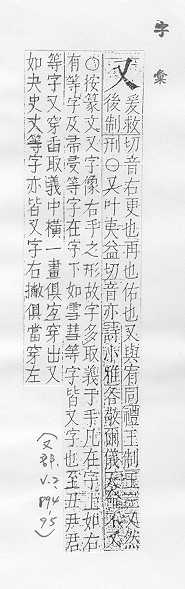 字彙
又 爰救切音右更也再也佑也又與宥同禮王制王三又然
後制刑○又叶夷益切音亦詩小雅各敬爾儀天命不又
○按篆文又字像右手之形故字多取義于手凡在字上如右
有等字及帚曼等字在字下如雪彗等字皆又字也至丑尹君
等字又穿 取義中橫一畫俱 穿出又
如夬史丈等字亦皆又字右撇俱當穿左
(又部.
V.2
894
'95)